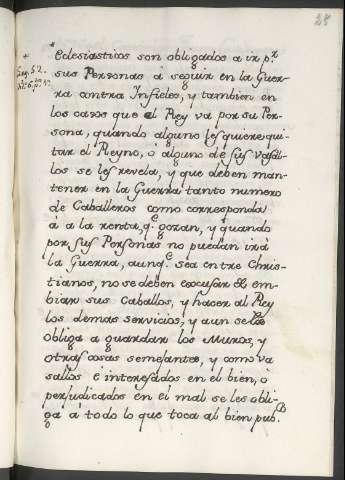 28
Eclesiasticos son obligados a ir p.r
sus Personas á seguir en la Guer-
ra contra Infieles, y tambien en
los casos que el Rey va por su Per-
sona, quando alguno les quiere qui-
tar el Reyno, ò alguno de sus vasa-
llos se les revela, y que deben man-
tener en la Guerra tanto numero
de Caballeros como corresponda
á a la renta, q.e gozan, y quando
por sus Personas no puedan ir á
la Guerra, aunq.e sea entre Chris-
tianos, no se deben escusar de em-
biar sus Caballos, y hacer al Rey
los demas servicios, y aun se les
obliga a guardar los Muros, y
otras cosas semejantes, y como va
sallos é interesados en el bien, ò
perjudicados en el mal se les obli-
ga á todo lo que toca al bien pub.co